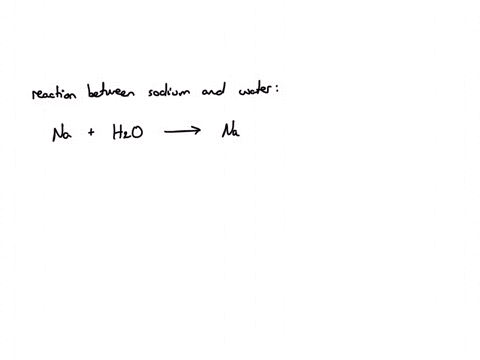 reaction between sodium and water:
Na + H2O → Na